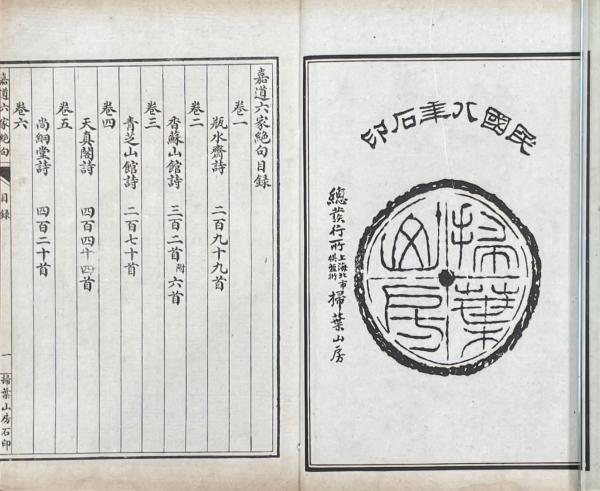 民國八年石印
掃葉山房
總發行所上海北市棋盤街掃葉山房
嘉道六家絕句目錄
卷一
瓶水齋詩 二百九十九首
卷二
香蘇山館詩 三百二首附六首
卷三
青芝山館詩 二百七十首
卷四
天真閣詩 四百四十四首
卷五
尚絅堂詩 四百二十首
卷六
嘉道六家絕句
目錄
一
掃葉山房石印